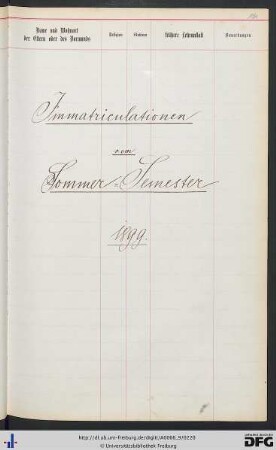 Name und Wohnort
der Eltern oder des Vormunds
Religion
Studium
frühere Lehranstalt
Bemerkungen
Immatriculationen
vom
Sommer-Semester
1899.
http://dl.ub.uni-freiburg.de/diglit/A0066_9/0220
© Universitätsbibliothek Freiburg
DFG